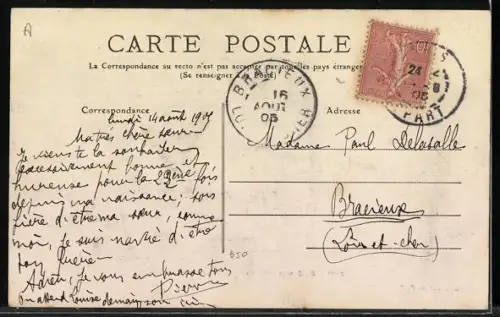 A
CARTE POSTALE
La Correspondance au verso n'est pas acceptée par tous les pays étrangers
(Se renseigner à la Poste)
Correspondance
Adresse
BRACIEUX
16
AOUT
05
LOIR
CHER
24
05
DÉPART
lundi 14 août 1905
Ma très chère sœur
Je viens te la souhaiter
bonne et
heureuse pour la 22ème fois
depuis ma naissance; sois
fière d'être ma sœur, comme
moi, je suis d'être
ton
Adieu, je vous embrasse tous
Pierre
On attend Louise demain soir
Madame Paul Delasalle
Bracieux
(Loir et cher)
850